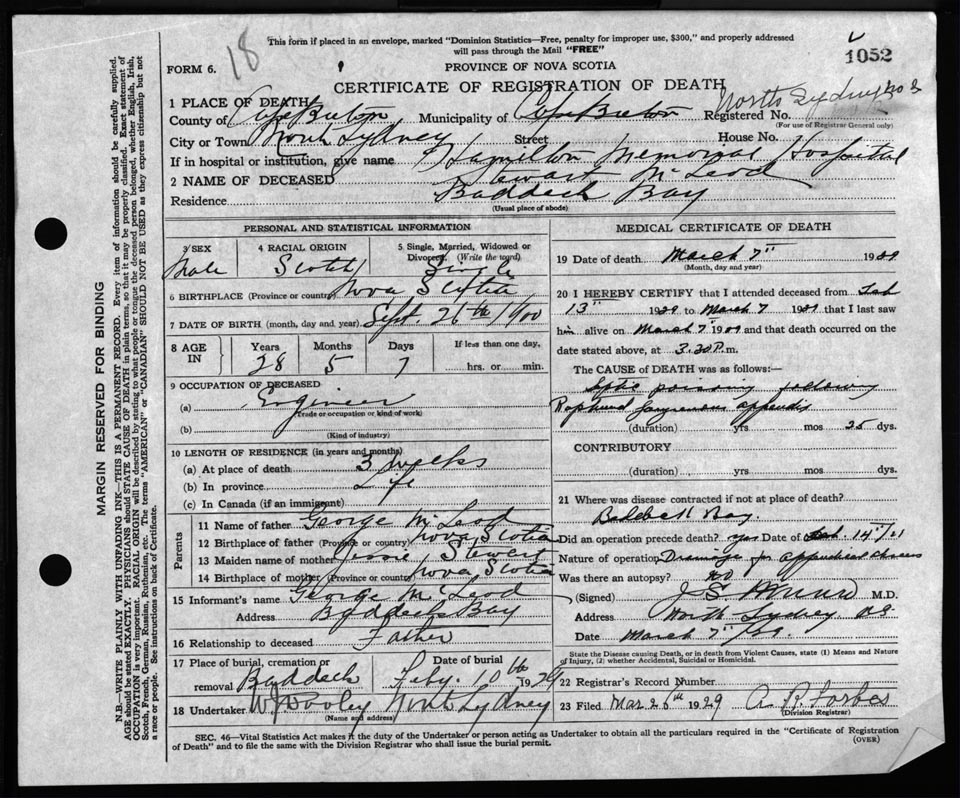 18
This form if placed in an envelope, marked "Dominion Statistics—Free, penalty for improper use, $300," and properly addressed
will pass through the Mail "FREE"
1052
FORM 6.
PROVINCE OF NOVA SCOTIA
CERTIFICATE OF REGISTRATION OF DEATH
North Sydney No 3
1 PLACE OF DEATH
County of Cape Breton Municipality of Cape Breton Registered No.
(For use of Registrar General only)
City or Town North Sydney Street House No.
If in hospital or institution, give name Hamilton Memorial Hospital
2 NAME OF DECEASED Stewart McLeod
Residence Baddeck Bay
(Usual place of abode)
PERSONAL AND STATISTICAL INFORMATION
3 SEX 4 RACIAL ORIGIN 5 Single, Married, Widowed or Divorced, (Write the word)
Male Scotch Single
6 BIRTHPLACE (Province or country) Nova Scotia
7 DATE OF BIRTH (month, day and year) Sept. 26th 1900
8 AGE IN Years Months Days If less than one day,
28 5 7 hrs. or min.
9 OCCUPATION OF DECEASED
(a) Engineer
(Trade or occupation or kind of work)
(b)
(Kind of industry)
10 LENGTH OF RESIDENCE (in years and months)
(a) At place of death 3 weeks
(b) In province Life
(c) In Canada (if an immigrant)
Parents
11 Name of father George McLeod
12 Birthplace of father (Province or country) Nova Scotia
13 Maiden name of mother Jessie Stewart
14 Birthplace of mother (Province or country) Nova Scotia
15 Informant's name George McLeod
Address Baddeck Bay
16 Relationship to deceased Father
17 Place of burial, cremation or removal Baddeck Date of burial Feby. 10th 1929
18 Undertaker W J Dooley North Sydney
(Name and address)
MEDICAL CERTIFICATE OF DEATH
19 Date of death March 7" 1929
(Month, day and year)
20 I HEREBY CERTIFY that I attended deceased from Feb
13" 1929 to March 7 1929 that I last saw
him alive on March 7" 1929 and that death occurred on the
date stated above, at 3.30 P.m.
The CAUSE of DEATH was as follows:—
Septic poisoning following
Ruptured gangrenous appendix
(duration) yrs mos 25 dys.
CONTRIBUTORY
(duration) yrs. mos. dys.
21 Where was disease contracted if not at place of death?
Baddeck Bay.
Did an operation precede death? yes Date of Feb. 14"
Nature of operation Drainage for appendical abscess
Was there an autopsy? no
(Signed) J S Munro M.D.
Address North Sydney NS
Date March 7"
State the Disease causing Death, or in death from Violent Causes, state (1) Means and Nature
of Injury, (2) whether Accidental, Suicidal or Homicidal.
22 Registrar's Record Number
23 Filed Mar 26th 1929 A. R. Forbes
(Division Registrar)
SEC. 46—Vital Statistics Act makes it the duty of the Undertaker or person acting as Undertaker to obtain all the particulars required in the "Certificate of Registration
of Death" and to file the same with the Division Registrar who shall issue the burial permit.
(OVER)
MARGIN RESERVED FOR BINDING
N.B.—WRITE PLAINLY WITH UNFADING INK—THIS IS A PERMANENT RECORD. Every item of information should be carefully supplied.
AGE should be stated EXACTLY. PHYSICIANS should STATE CAUSE OF DEATH in plain terms, so that it may be properly classified. Exact statement of
OCCUPATION is very important. RACIAL ORIGIN will be described by stating to what people or tongue the deceased person belonged, whether English, Irish,
Scotch, French, German, Russian, Ruthenian, etc. The terms "AMERICAN" or "CANADIAN" SHOULD NOT BE USED as they express citizenship but not
a race or people. See instructions on back of Certificate.